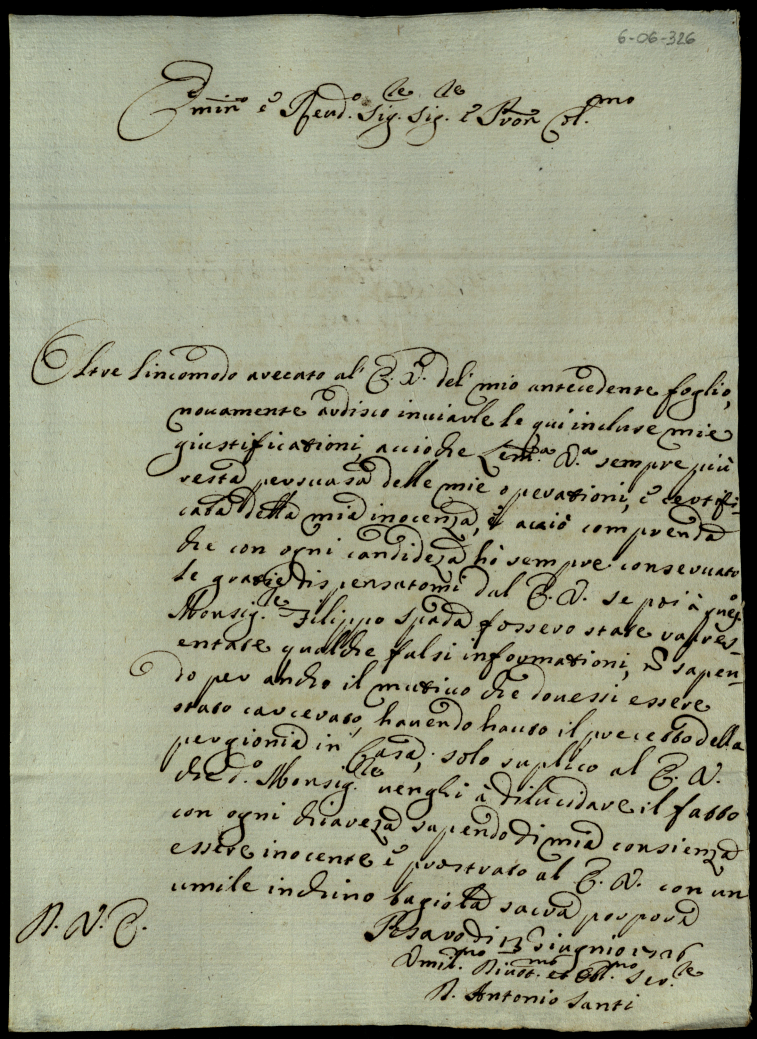 6-06-326
Emin.º è Reud.º Sig.re Sig.re è Pron Col.mo
Oltre lincomodo arecato al' E. V. del' mio antecedente foglio,
nouamente ardisco inuiarle le qui incluse mie
giustificationi, accioche Lem.a V.a sempre più
resta persuasa delle mie operationi, è certifi-
cata della mia inocenza, è acciò comprenda
che con ogni candideza hò sempre conseruato
le gratie dispensatomi dal E. V. se poi à
Monsig.re Filippo Spada fossero state rapres-
entate qualche falsi informationi, sapen-
do per ancho il mutiuo che douessi essere
stato carcerato, hauendo hauto il precetto della
pergionia in Casa, solo suplico al E. V.
che d.º Monsig.re uenghi à dilucidare il fatto
con ogni chiareza sapendo di mia consienza
essere inocente è prostrato al E. V. con un
umile inchino bagio la sacra porpora
D. V. E.
Pesaro di 13 Giugnio 1726
Vmil.mo Diuot.mo et Obl.mo Ser.re
D. Antonio Santi